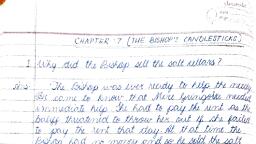 CHAPTER-7 (THE BISHOP'S CANDLESTICKS)
1. Why did the Bishop sell the salt cellars?
Ans- The Bishop was ever ready to help the needy
He came to know that Mere Gringoire needed
immediate help. She had to pay the rent as the
bailiff threatened to throw her out if she failed
to pay the rent that day. At that time the
Bishop had no money and so he sold the salt